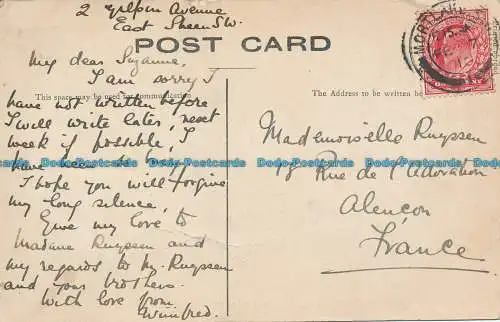 2 Gilpin Avenue
East Sheen S.W.
POST CARD
My dear Suzanne,
I am sorry I
have not written before
This space may be used for communication
I will write later, next
week if possible, I
have been so busy
I hope you will forgive
my long silence,
Give my love to
Madame Ruyssen and
my regards to Mr. Ruyssen
and your brothers.
With love from
Winifred.
MORTLAKE
The Address to be written
Mademoiselle Ruyssen
18 Rue de l'Adoration
Alençon
France
Dodo-Postcards Dodo-Postcards Dodo-Postcards Dodo-Postcards Dodo-Postcards